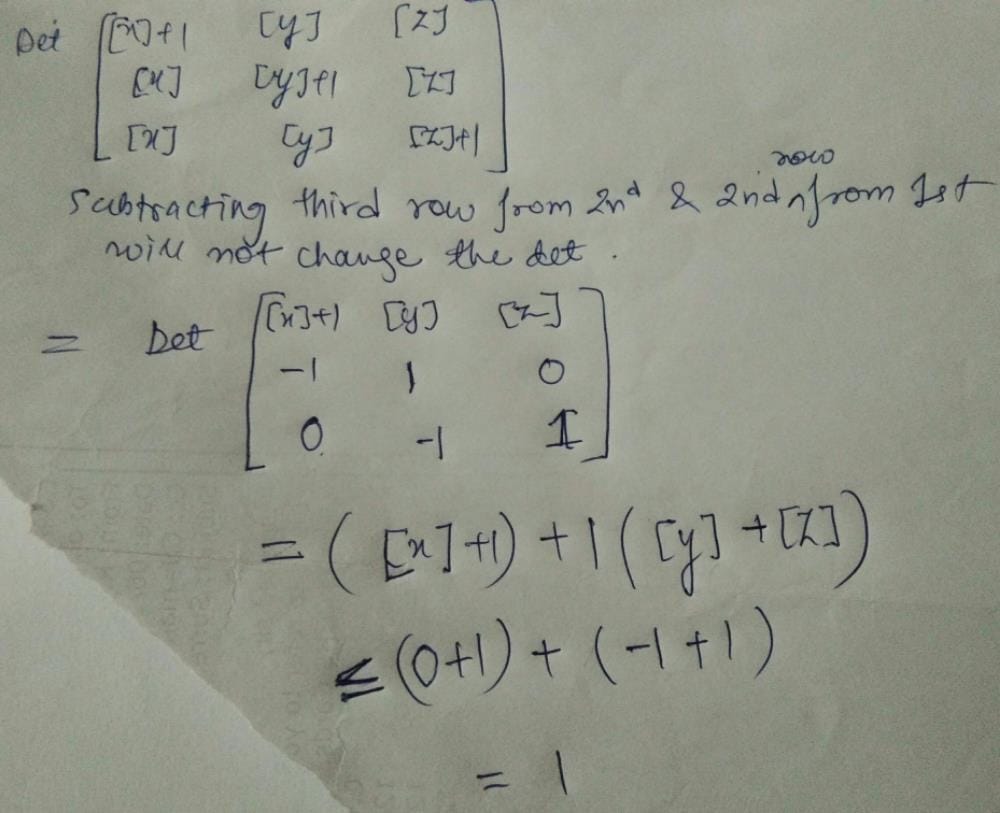 Det [[x]+1 [y] [z]
[x] [y]+1 [z]
[x] [y] [z]+1]
row
Subtracting third row from 2nd & 2nd ∧ from 1st
will not change the det.
= Det [[x]+1 [y] [z]
-1 1 0
0 -1 1]
= ([x]+1) + 1([y]+[z])
≤ (0+1) + (-1+1)
= 1